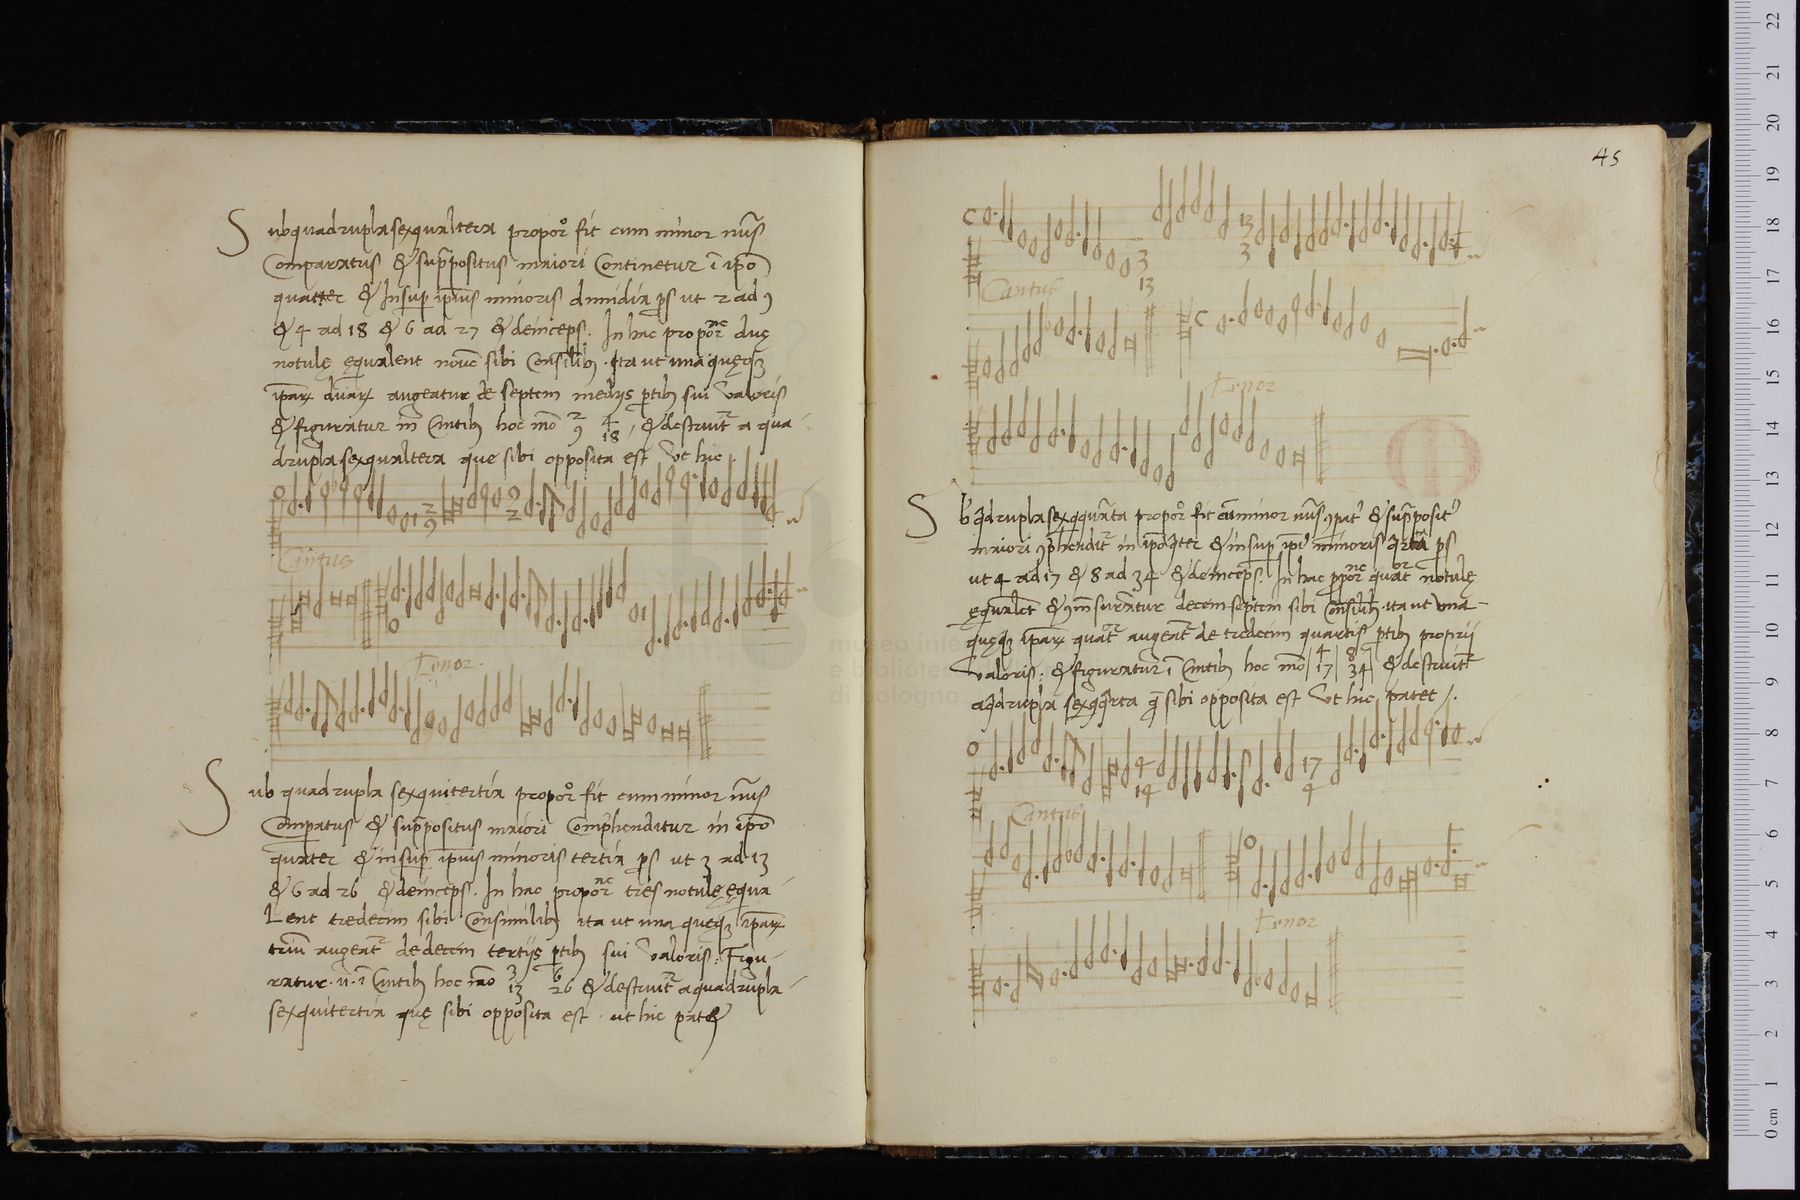 Subquadruplasexqualtera propor͞ fit cum minor nu͞s
Comparatus & sup͞positus maiori Continetur i͞ ip͞o
quatter & Insup ip͞ius minoris dimidia p͞s ut 2 ad 9
& 4 ad 18 & 6 ad 27 & deinceps. In hac propor͞ne duę
notulę equalent nouē sibi Consilib9. Ita ut una quęq3
ip͞arꝝ duarꝝ augeatur de septem medijs p͞tib9 sui valoris
& figuratur in Cantib9 hoc mo͞ 2/9 4/18, & destruit᷑ a qua
druplasexqualtera que sibi opposita est Vt hic.
2
9
9
2
Cantus
Tenor.
Sub quadrupla sexquitertia propor͞ fit cum minor nu͞s
Compatus & sup͞positus maiori Comp͞henditur in ip͞o
quater & insup ip͞ius minoris tertia p͞s ut 3 ad 13
& 6 ad 26 & deinceps. In hac propor͞ne tres notulę equa
Lent tredecim sibi Consimilib9 ita ut una quęq3 ip͞arꝝ
triu͞ augeat᷑ de decem tertijs p͞tib9 sui valoris: Figu-
ratur .n. i͞ Cantib9 hoc mo͞ 3/13 6/26 & destruit᷑ a quadrupla
sexquitertia quę sibi opposita est. ut hic patet
45
3
13
13
3
Cantus
Tenor
Sb͞qdruplasexqquarta propor͞ fit cu͞ minor nu͞s 9pat9 & sup͞posit9
maiori 9p͞hendit᷑ in ip͞o qter & insup ip͞i9 minoris q͞rta p͞s
ut 4 ad 17 & 8 ad 34 & deinceps. In hac ppor͞ne quat͞or notulę
equale͞t & 9m͞suratur decemseptem sibi Consilib9. ita ut una-
quęq3 ip͞arꝝ quat͞or augeat᷑ de tredecim quartis p͞tib9 proprij
Valoris: & figuratur i͞ Cantib9 hoc mo͞ |4/17| 8/34| & destruit᷑
aqdrupla sexqq͞rta q͞ sibi opposita est Vt hic patet /.
4
14
17
4
Cantus
Tenor
museo inte
e bibliotec
di bologna
22
21
20
19
18
17
16
15
14
13
12
11
10
9
8
7
6
5
4
3
2
1
0 cm